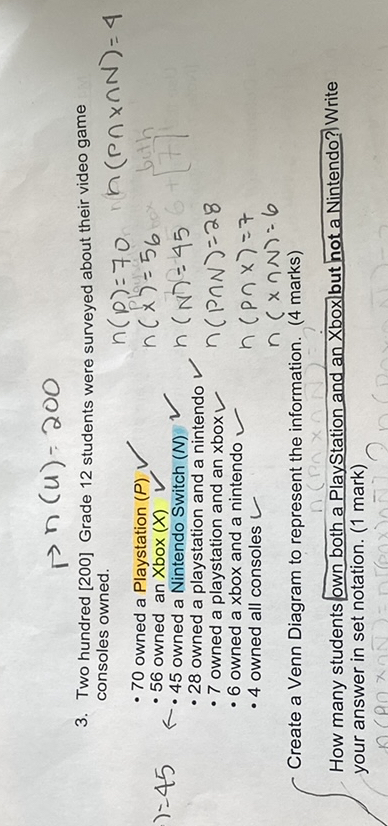 → n(U) = 200
3. Two hundred [200] Grade 12 students were surveyed about their video game
consoles owned.
• 70 owned a Playstation (P) ✓
• 56 owned an Xbox (X) ✓
)=45 ← • 45 owned a Nintendo Switch (N) ✓
• 28 owned a playstation and a nintendo ✓
• 7 owned a playstation and an xbox ✓
• 6 owned a xbox and a nintendo ✓
• 4 owned all consoles ✓
n(P)=70 n(P∩X∩N)=4
n(X)=56 both
n(N)=45 6+[7]
n(P∩N)=28
n(P∩X)=7
n(X∩N)=6
Create a Venn Diagram to represent the information. (4 marks)
How many students own both a PlayStation and an Xbox but not a Nintendo? Write
your answer in set notation. (1 mark)